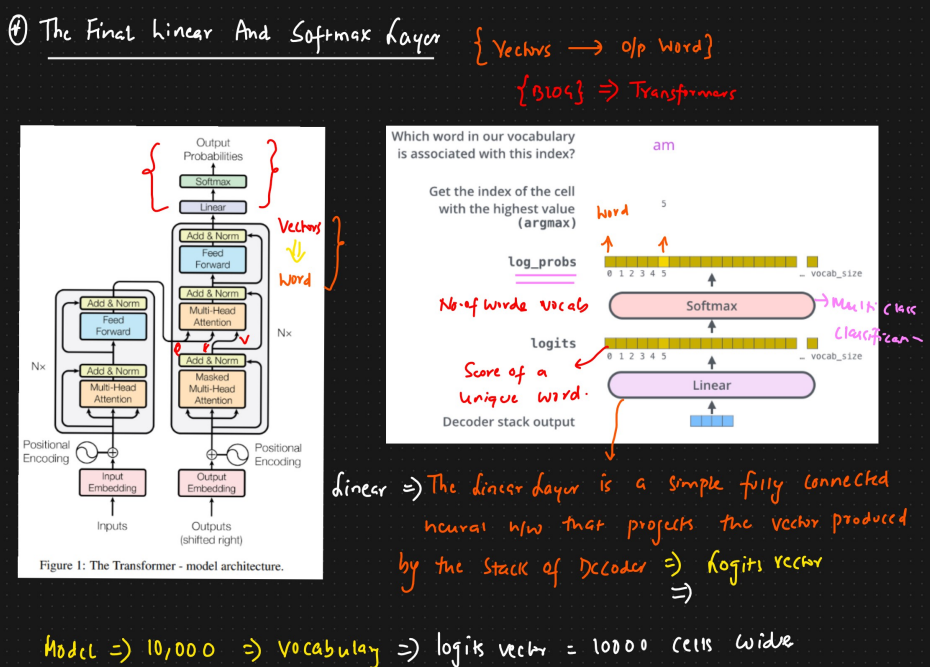 The Final Linear And Softmax Layer
{ Vectors → o/p Word}
{BLOG} ⇒ Transformers
Output
Probabilities
Softmax
Linear
Add & Norm
Feed
Forward
Add & Norm
Multi-Head
Attention
Add & Norm
Masked
Multi-Head
Attention
Nx
Positional
Encoding
Output
Embedding
Outputs
(shifted right)
Vectors
Word
Q K V
Add & Norm
Feed
Forward
Nx
Add & Norm
Multi-Head
Attention
Positional
Encoding
Input
Embedding
Inputs
Figure 1: The Transformer - model architecture.
Which word in our vocabulary
is associated with this index?
am
Get the index of the cell
with the highest value
(argmax)
5
Word
log_probs
0 1 2 3 4 5 ... vocab_size
No. of words vocab
Softmax
Multi class
logits
0 1 2 3 4 5 ... vocab_size
Score of a
unique word.
Linear
Decoder stack output
Linear ⇒ The Linear Layer is a simple fully connected
neural n/w that projects the vector produced
by the stack of Decoder ⇒ Logits vector
⇒
Model ⇒ 10,000 ⇒ vocabulary ⇒ logits vector = 10000 cells wide